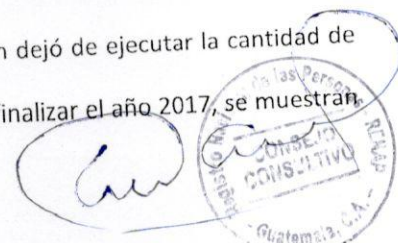 n dejó de ejecutar la cantidad de
finalizar el año 2017, se muestran
Registro Nacional de las Personas - RENAP
CONSEJO
CONSULTIVO
- Guatemala, C.A. -